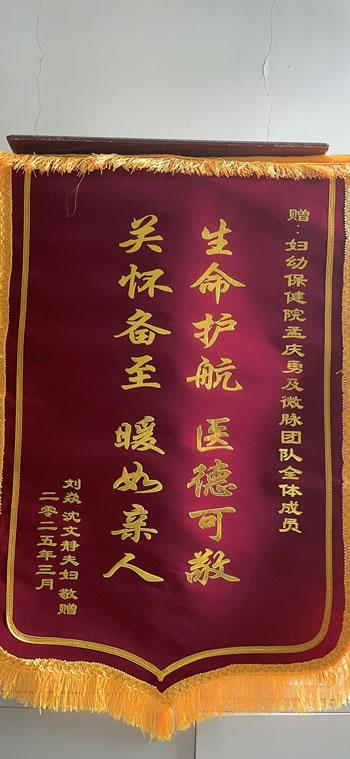 赠：妇幼保健院孟庆勇及微脉团队全体成员
生命护航 医德可敬
关怀备至 暖如亲人
刘焱 沈文静夫妇 敬赠
二零二五年三月